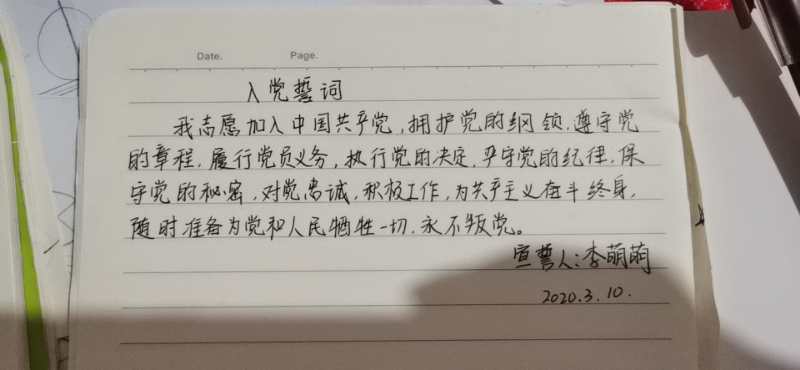 Date. Page.
入党誓词
我志愿加入中国共产党,拥护党的纲领,遵守党
的章程,履行党员义务,执行党的决定,严守党的纪律,保
守党的秘密,对党忠诚,积极工作,为共产主义奋斗终身,
随时准备为党和人民牺牲一切,永不叛党。
宣誓人:李萌萌
2020.3.10.